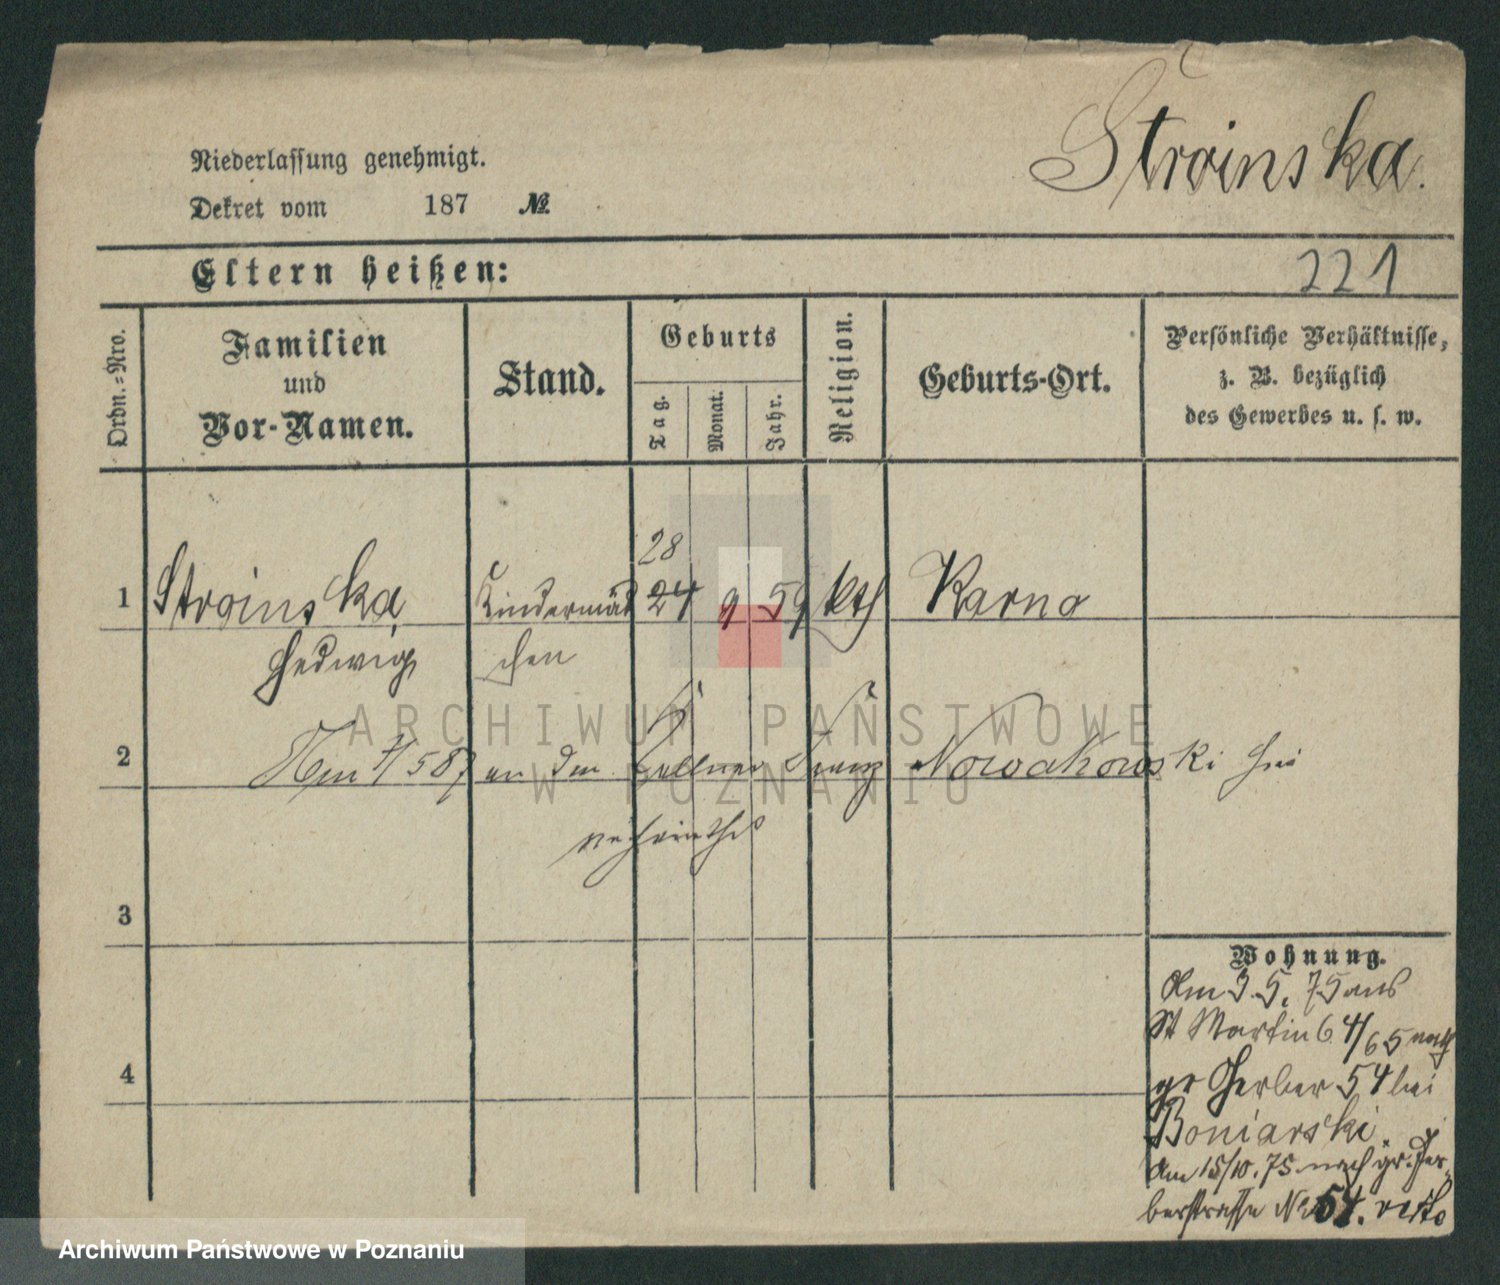 Stroinska.
Niederlassung genehmigt.
Dekret vom 187 №
Eltern heißen:
221
Ordn.=Nro.
Familien
und
Vor-Namen.
Stand.
Geburts
Tag.
Monat.
Jahr.
Religion.
Geburts-Ort.
Persönliche Verhältnisse,
z. B. bezüglich
des Gewerbes u. s. w.
28
1 Stroinska Kindermäd 24 9 59 kth Karna
Hedwig chen
ARCHIWUM PAŃSTWOWE
W POZNANIU
2 587 an den Kellner Franz Nowakowski hei
rathet
3
4
Wohnung.
Am 3.5.75 aus
St Martin 64/65 nach
gr Gerber 54 bei
Boniarski.
Am 15/10.75 nach gr. Ger-
berstrasse No 54.
Archiwum Państwowe w Poznaniu